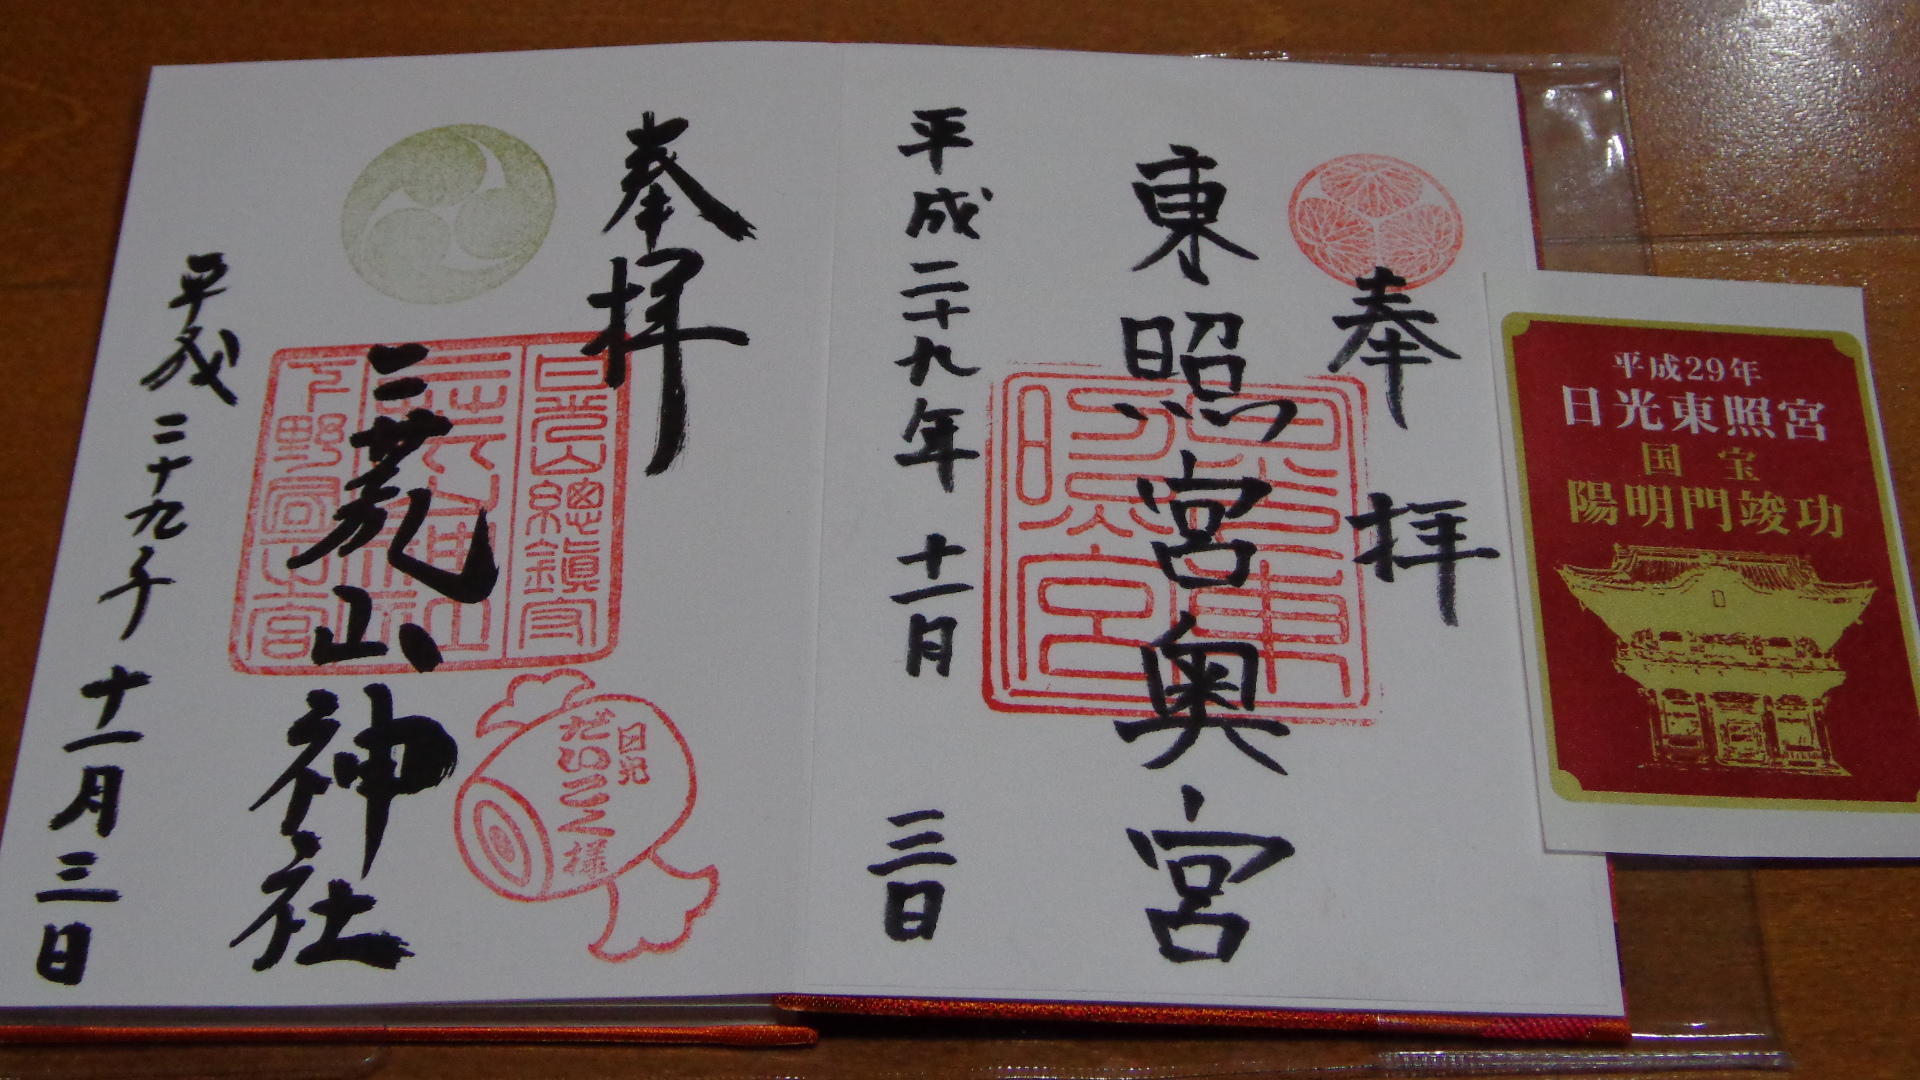 奉拝
東照宮奥宮
平成二十九年十一月三日
東照宮
奉拝
二荒山神社
平成二十九年十一月三日
日光山總鎮守
下野國一宮
日光
だいこく様
平成29年
日光東照宮
国宝
陽明門竣功